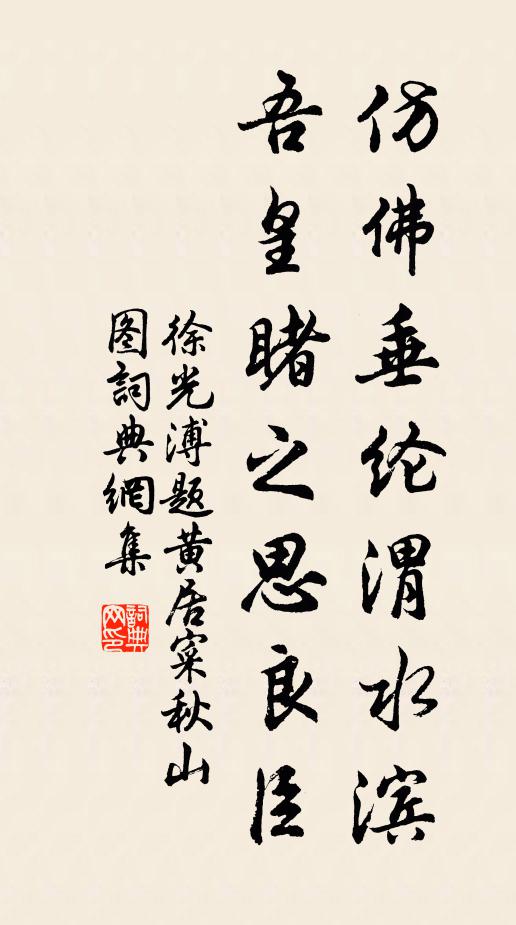 仿佛垂纶渭水滨
吾皇睹之思良臣
徐光溥题黄居寀秋山
图词典網集
詞典网印